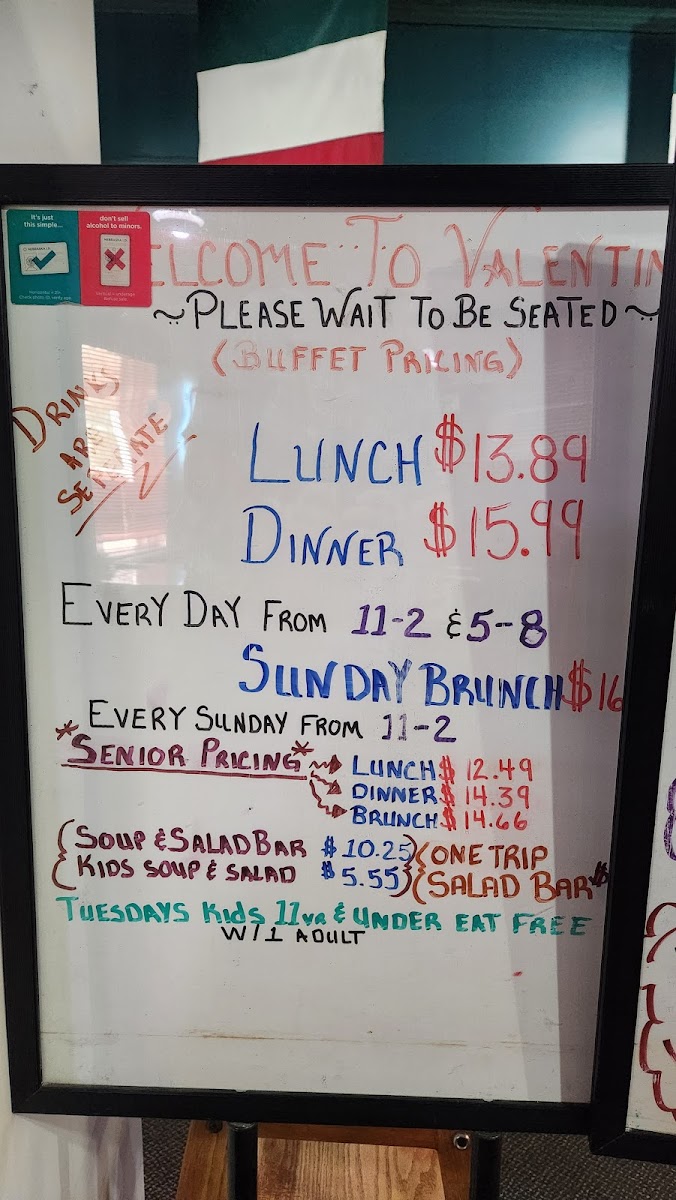 It's just
this simple...
don't sell
alcohol to minors.
ELCOME TO VALENTIN
~PLEASE WAIT TO BE SEATED~
(BUFFET PRICING)
DRINKS
ARE
SEPARATE
LUNCH $13.89
DINNER $15.99
EVERY DAY FROM 11-2 & 5-8
SUNDAY BRUNCH $16
EVERY SUNDAY FROM 11-2
*SENIOR PRICING*
LUNCH $ 12.49
DINNER $ 14.39
BRUNCH $ 14.66
SOUP & SALAD BAR $ 10.25
KIDS SOUP & SALAD $ 5.55
ONE TRIP
SALAD BAR $
TUESDAYS KIDS 11YR & UNDER EAT FREE
W/1 ADULT